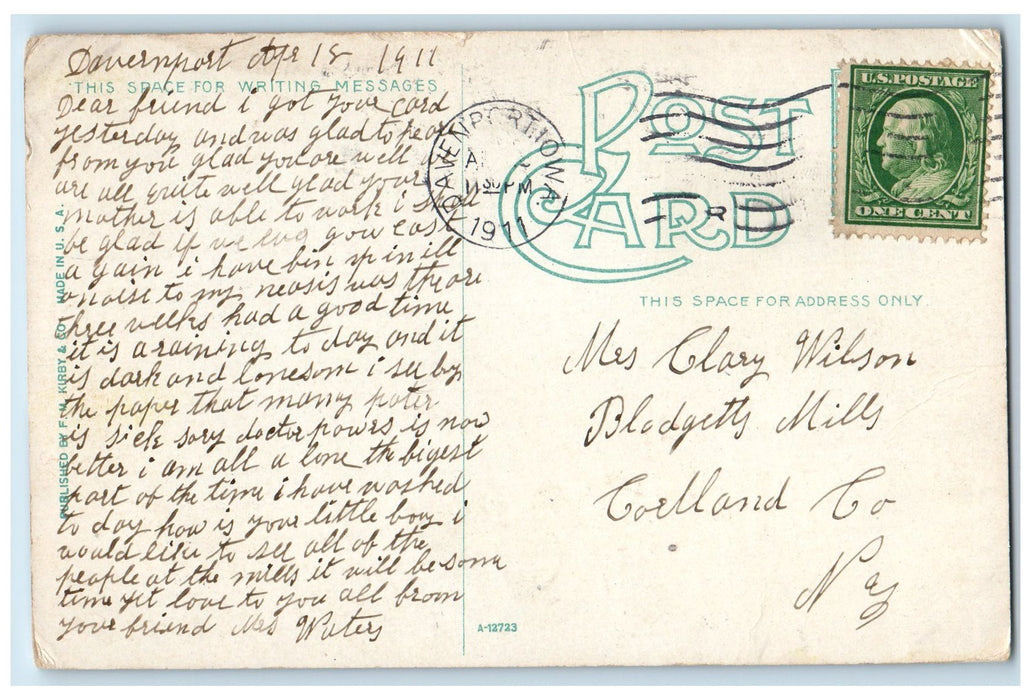 Davenport Apr 18, 1911
THIS SPACE FOR WRITING MESSAGES
Dear friend i got your card
yesterday and was glad to hear
from you glad you are well
are all quite well glad your
mother is able to work i
be glad if we ever you east
a gain i have bin up in ill
to my neasis was theare
three weeks had a good time
it is a raining to day and it
is dark and lonesom i see by
the paper that mamy poter
is sick sory doctor powrs is now
better i am all a lone the bigest
part of the time i have washed
to day how is your little boy i
would like to see all of the
people at the mills it will be some
time yet love to you all from
your friend Mrs Waters
PUBLISHED BY F.M. KIRBY & CO. MADE IN U. S. A.
POST CARD
DAVENPORT, IOWA
11 30 PM
1911
U.S. POSTAGE
ONE CENT
THIS SPACE FOR ADDRESS ONLY.
Mrs Clary Wilson
Blodgetts Mills
Cortland Co
N y
A-12723